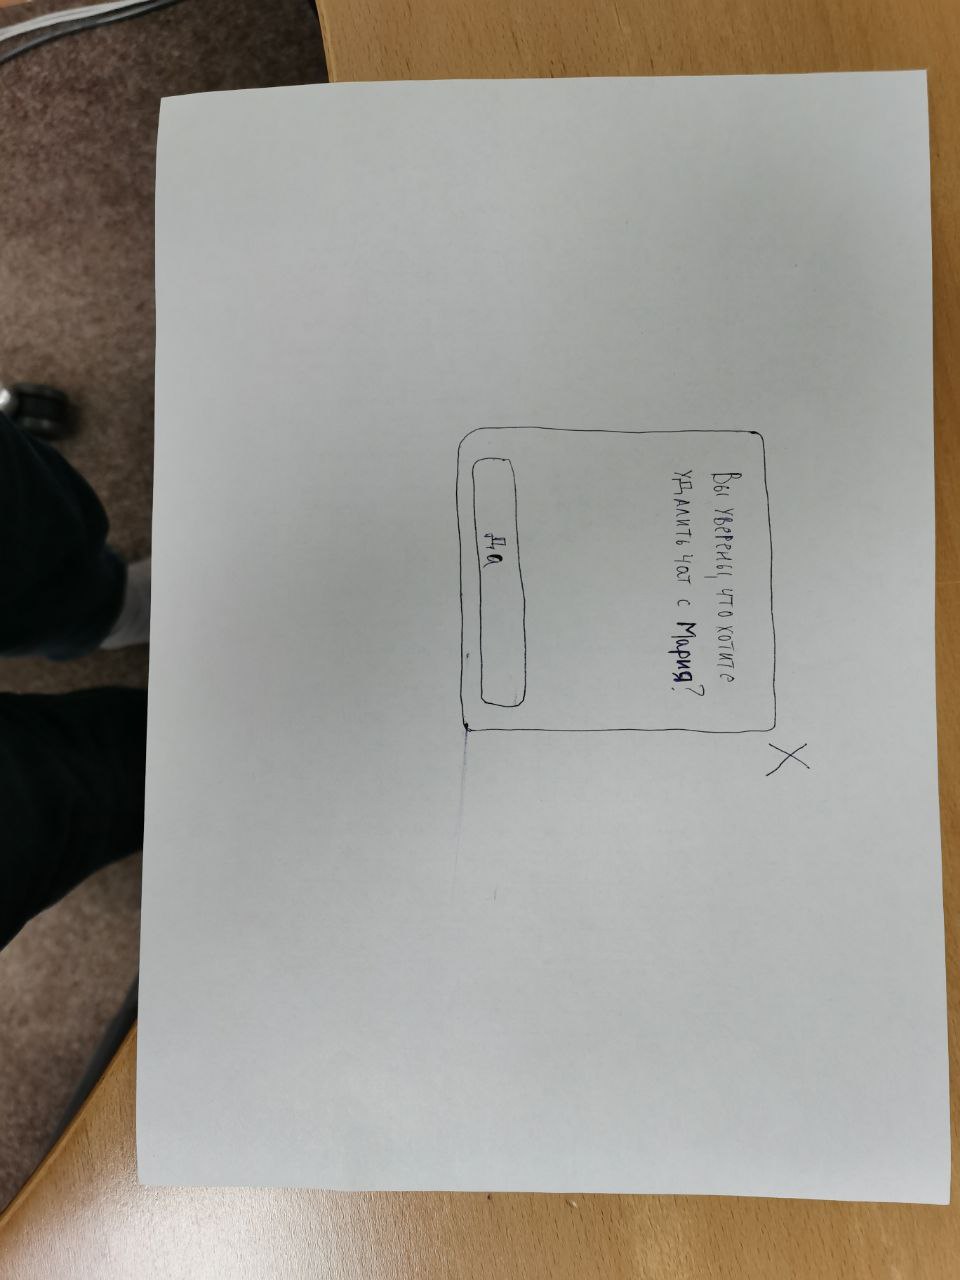 X
Вы уверены, что хотите
удалить чат с Мария?
Да